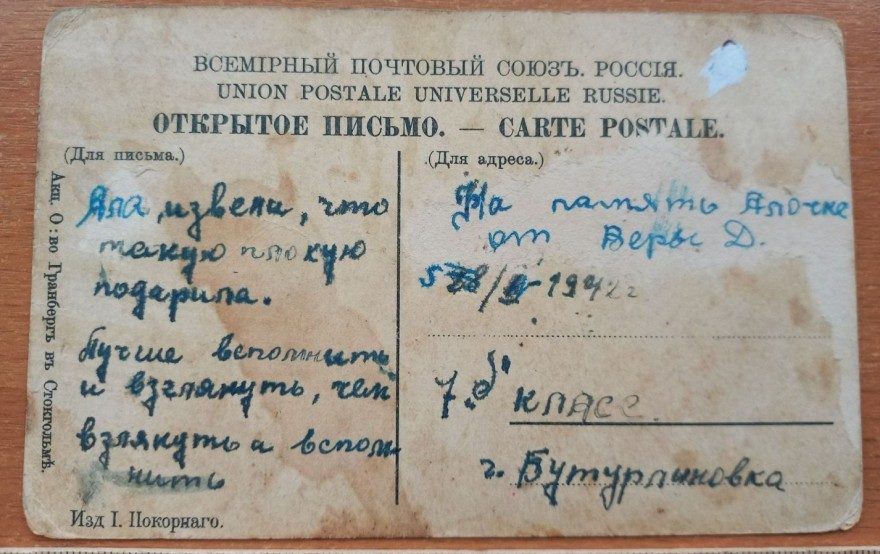 ВСЕМІРНЫЙ ПОЧТОВЫЙ СОЮЗЪ. РОССІЯ.
UNION POSTALE UNIVERSELLE RUSSIE.
ОТКРЫТОЕ ПИСЬМО. — CARTE POSTALE.
(Для письма.)
Ала, извени, что
такую плохую
подарила.
Лучше вспомнить
и взглянуть, чем
взглянуть и вспом-
нить
(Для адреса.)
На память Алочке
от Веры Д.
1942 г
7 "б" класс.
г. Бутурлиновка
Акц. О:во Гранбергъ въ Стокгольмѣ.
Изд І. Покорнаго.